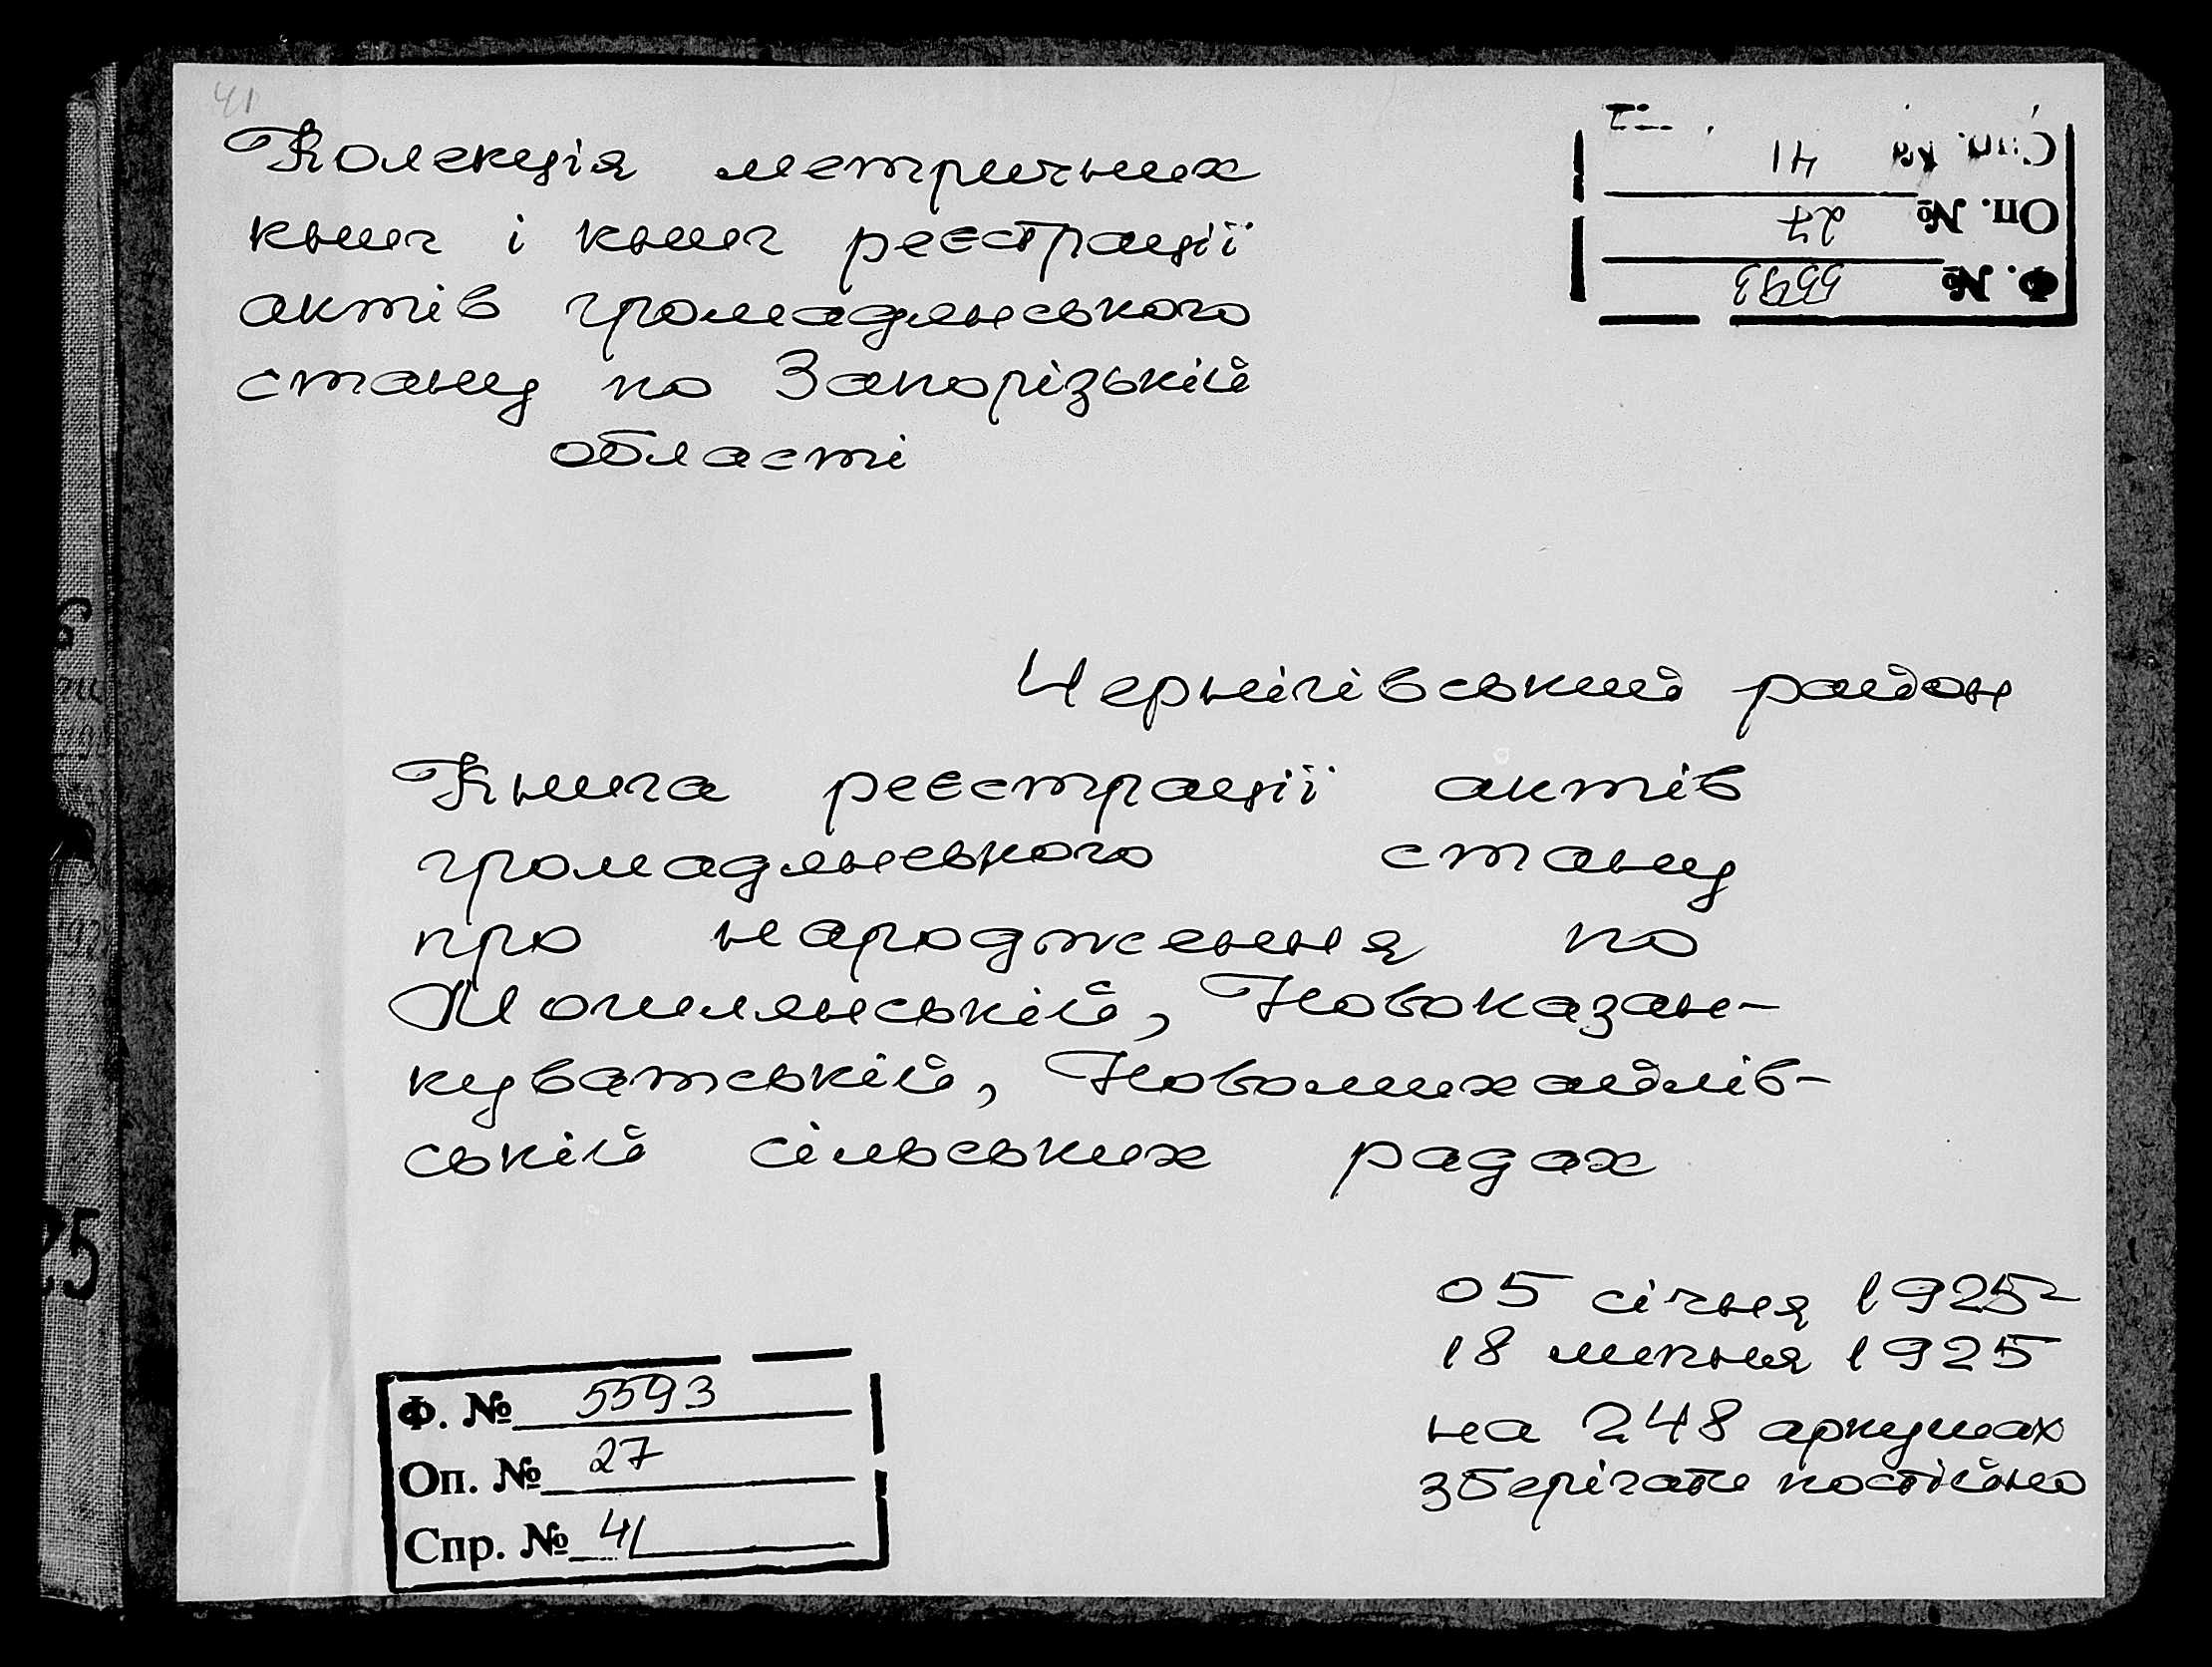 41
Колекція метричних
книг і книг реєстрації
актів громадянського
стану по Запорізькій
області
Ф. № 5593
Оп. № 27
41
Чернігівський район
Книга реєстрації актів
громадянського стану
про народження по
Могилянській, Новоказан-
куватській, Новомихайлів-
ській сільських радах
05 січня 1925-
18 липня 1925
на 248 аркушах
зберігати постійно
Ф. № 5593
Оп. № 27
Спр. № 41
25